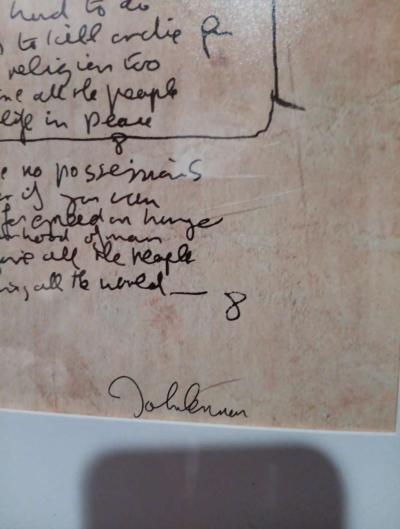 hard to do
to kill or die for
religion too
all the people
life in peace
8
no possessions
if you can
for greed or hunger
hood of man
all the people
all the world — 8
John Lennon